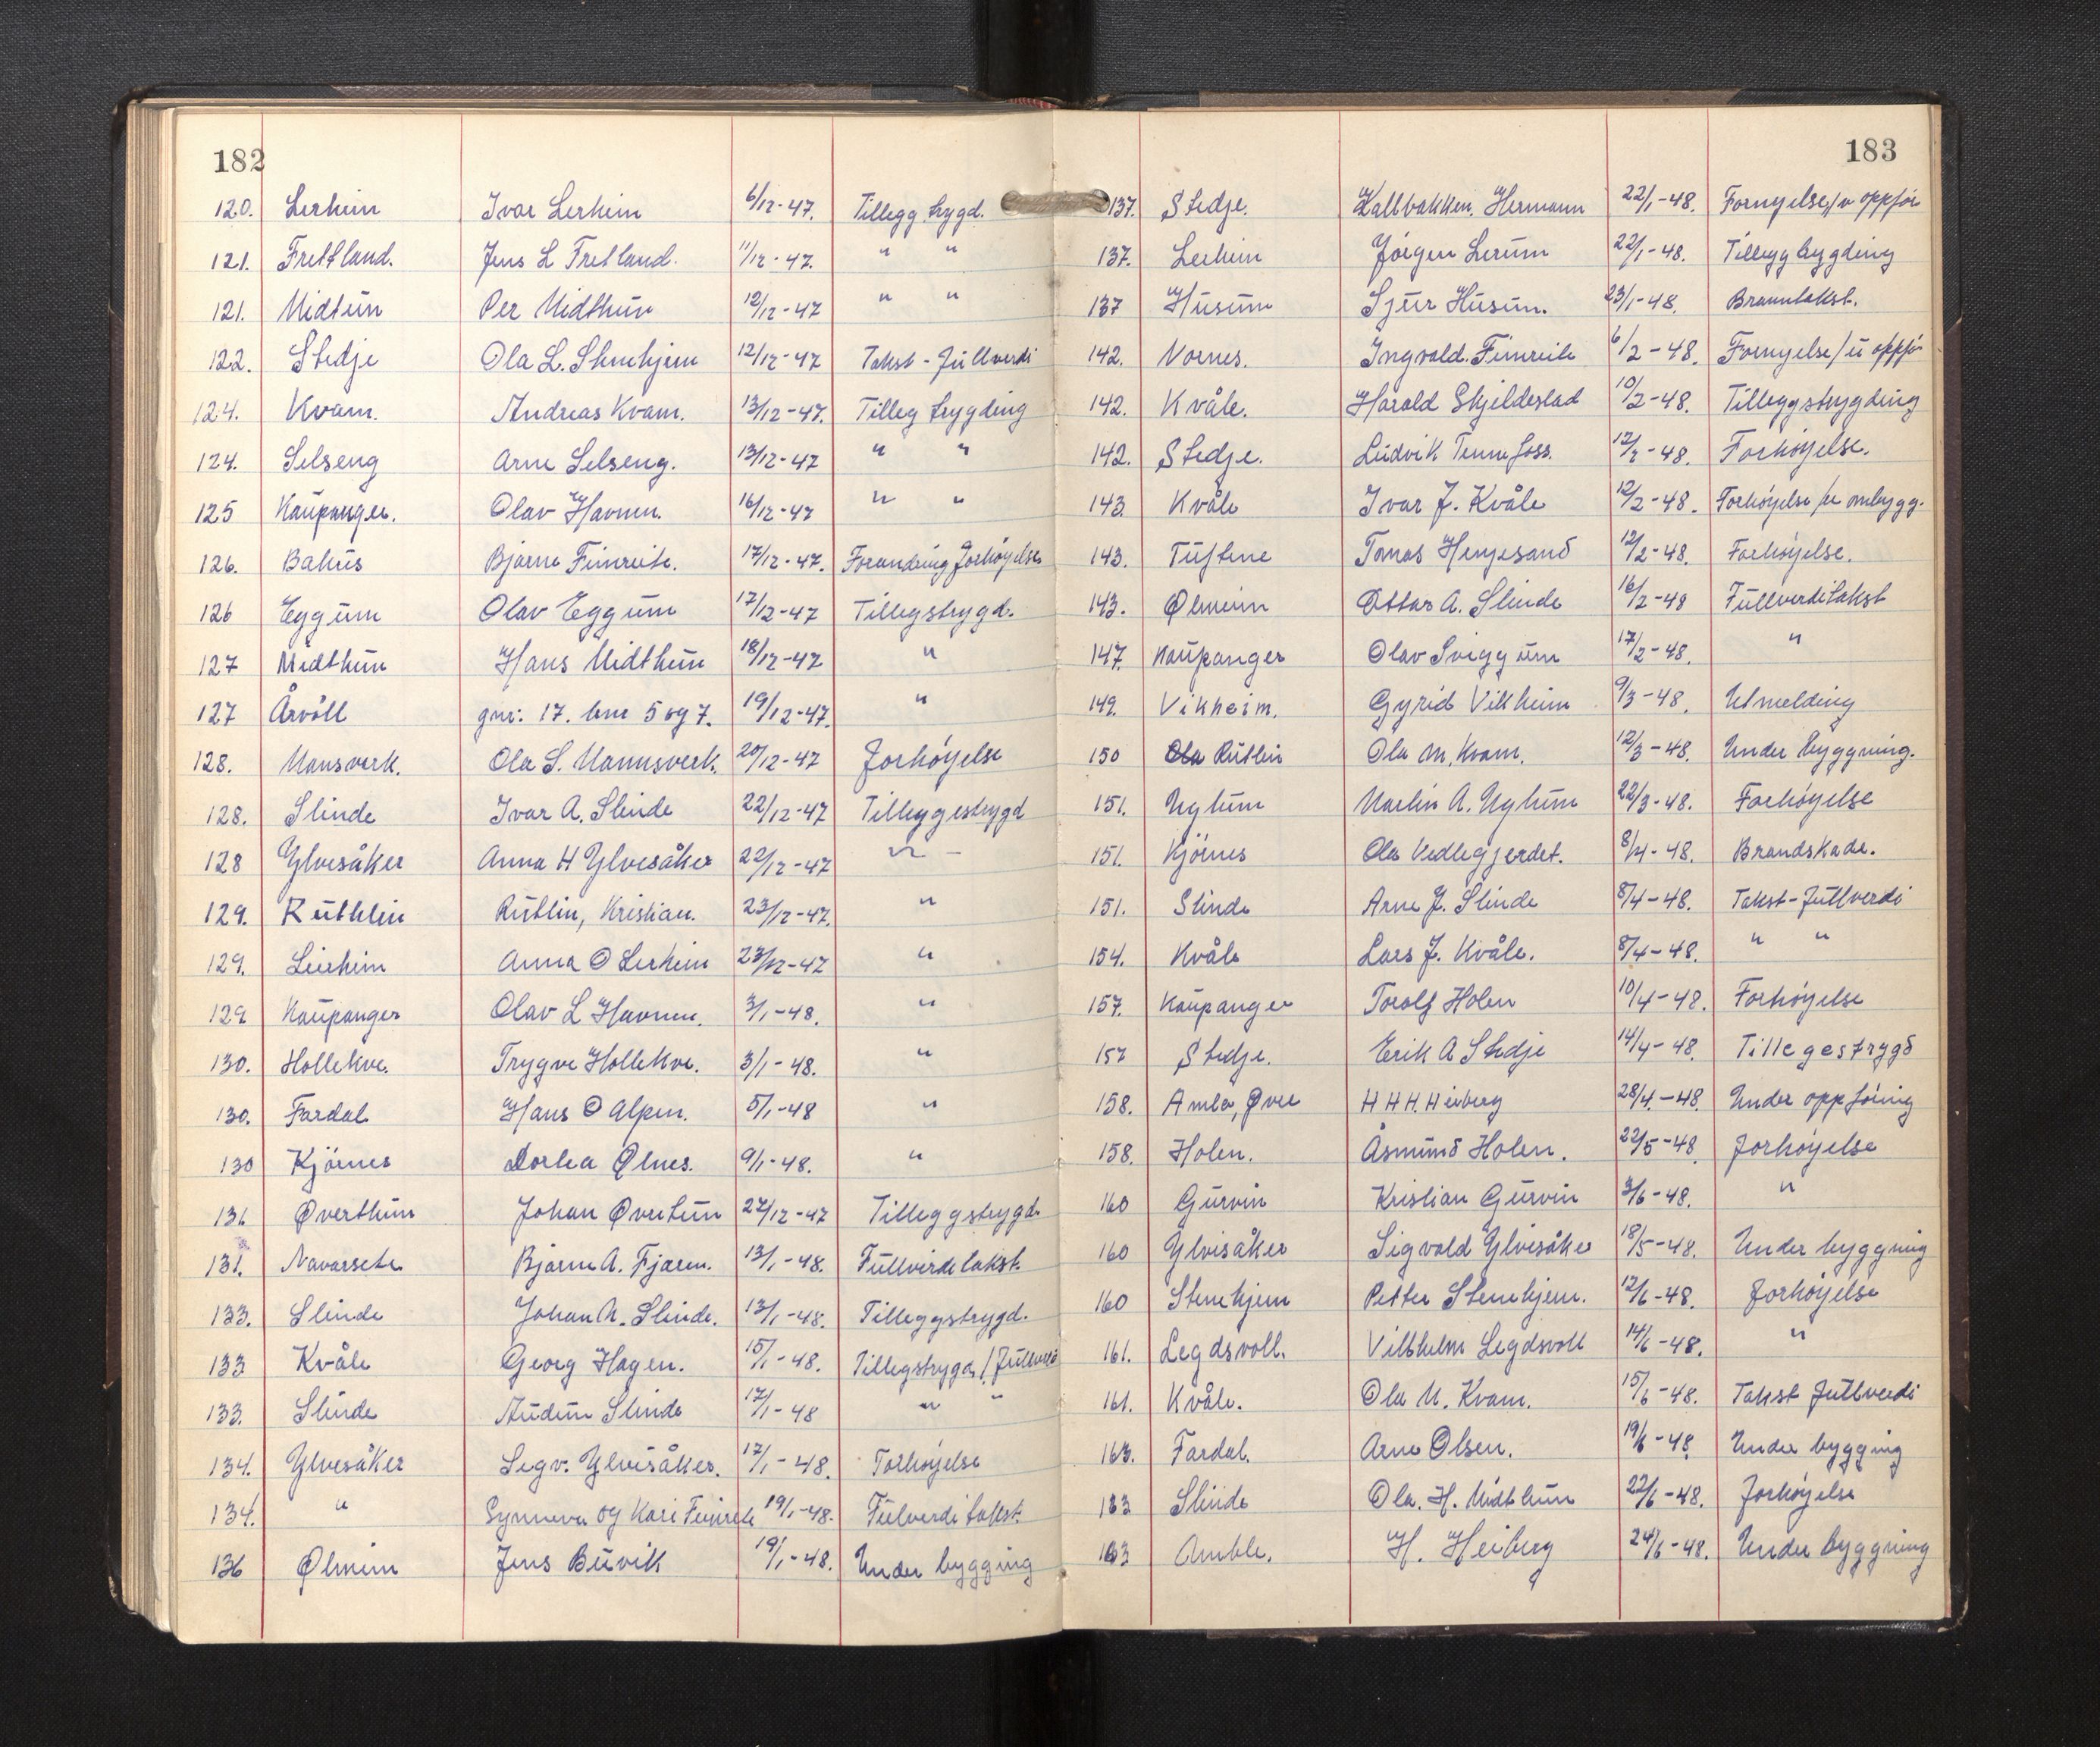 182
120. Lerheim Ivar Lerheim 6/12-47. Tillegg trygd.
121. Frettland. Jens L Fretland. 11/12-47. " "
121. Midtun Per Midthun 12/12-47 " "
122. Stedje Ola L. Stenehjem 12/12-47 Takst-fullverdi
124. Kvam. Andreas Kvam. 13/12-47. Tilleg trygding
124. Selseng Arne Selseng. 13/12-47 " "
125 Kaupanger. Olav Havnen. 16/12-47 " "
126. Bahus Bjarne Fimreite. 17/12-47. Forandring forhøyelse
126 Eggum Olav Eggum 17/12-47 Tillegstrygd.
127 Midthun Hans Midthun 18/12-47 "
127 Årvoll gnr. 17. bnr 5 og 7. 19/12-47. "
128. Mansverk. Ola S. Mannsverk. 20/12-47 Forhöyelse
128. Slinde Ivar A. Slinde 22/12-47 Tilleggestrygd
128 Ylvesåker Anna H Ylvesåker 22/12-47 " -
129. Ruthlin Rutlin, Kristian. 23/12-47. "
129. Leirheim Anna O Lerheim 23/12-47 "
129 Kaupanger Olav L Havnen. 3/1-48. "
130. Hollekve. Trygve Hollekve. 3/1-48. "
130. Fardal Hans O Alpen. 5/1-48 "
130 Kjörnes Dortea Ølnes. 9/1-48. "
131 Øverthun Johan Øvretun 27/12-47 Tilleggstrygd.
131. Navarsete Bjarne A. Fjæren. 13/1-48. Fullverdetakst.
133. Slinde Johan A. Slinde. 13/1-48. Tilleggstrygd.
133 Kvåle Georg Hagen. 15/1-48. Tillegstrygd./Fullverd
133. Slinde Audun Slinde 17/1-48 " "
134. Ylvesåker Segv. Ylvisåker. 17/1-48. Forhöyelse
134. " Synneva og Kari Fimreite 19/1-48. Fulverditakst.
136 Ølmeim Jens Buvik 19/1-48. Under bygging
183
137. Stedje. Kallbakken. Hermann 22/1-48. Fornyelse/u oppför
137. Lerheim Jörgen Lerum 22/1-48. Tillegg bygding
137 Husum Sjur Husum. 23/1-48. Branntakst.
142. Nornes. Ingvald. Fimreite 6/2-48. Fornyelse/u oppfö
142. Kvåle. Harald Skjeldestad 10/2-48. Tilleggstrygding
142. Stedje. Ludvik Tennefoss. 12/2-48. Forhöyelse.
143. Kvåle Ivar J. Kvåle 12/2-48. Forhöyelse/u ombygg.
143. Tuftene Tomas Henjesand 12/2-48. Forhöyelse.
143. Ølmeim Ottar A. Slinde 16/2-48 Fullverditakst
147. Kaupanger Olav Svigg um 17/2-48. "
149. Vikheim. Gyrid Vikheim 9/3-48. Utmelding
150 Ola Rutlin Ola M. Kvam. 12/3-48. Under byggning.
151. Nglum Martin A. Nglum 22/3-48. Forhöyelse
151. Kjörnes Ola Vedlegjerdet. 8/4-48. Brandskade.
151. Slinde Arne J. Slinde 8/4-48. Takst-fullverdi
154. Kvåle Lars J. Kvåle. 8/4-48. " "
157. Kaupanger Torolf Holen 10/4-48. Forhöyelse
157 Stedje. Erik A Stedje 14/4-48. Tillegestrygd
158. Amla, Øvre H H H. Heiberg 28/4.-48. Under oppföring
158. Holen. Åsmund Holen. 22/5-48 Forhöyelse
160 Gurvin Kristian Gurvin 3/6-48. "
160 Ylvisåker Sigvald Ylvisåker 18/5-48. Under byggning
160 Stenehjem Petter Stenehjem. 12/6-48. Forhöyelse
161. Legdsvoll. Vilhelm Legdsvoll 14/6-48. "
161. Kvåle. Ola M. Kvam. 15/6-48. Takst fullverdi
163. Fardal. Arne Olsen. 19/6-48. Under bygging
163 Slinde Ola. H. Midthun 22/6-48. Forhöyelse
163 Amble. H. Heiberg 24/6-48. Under byggning